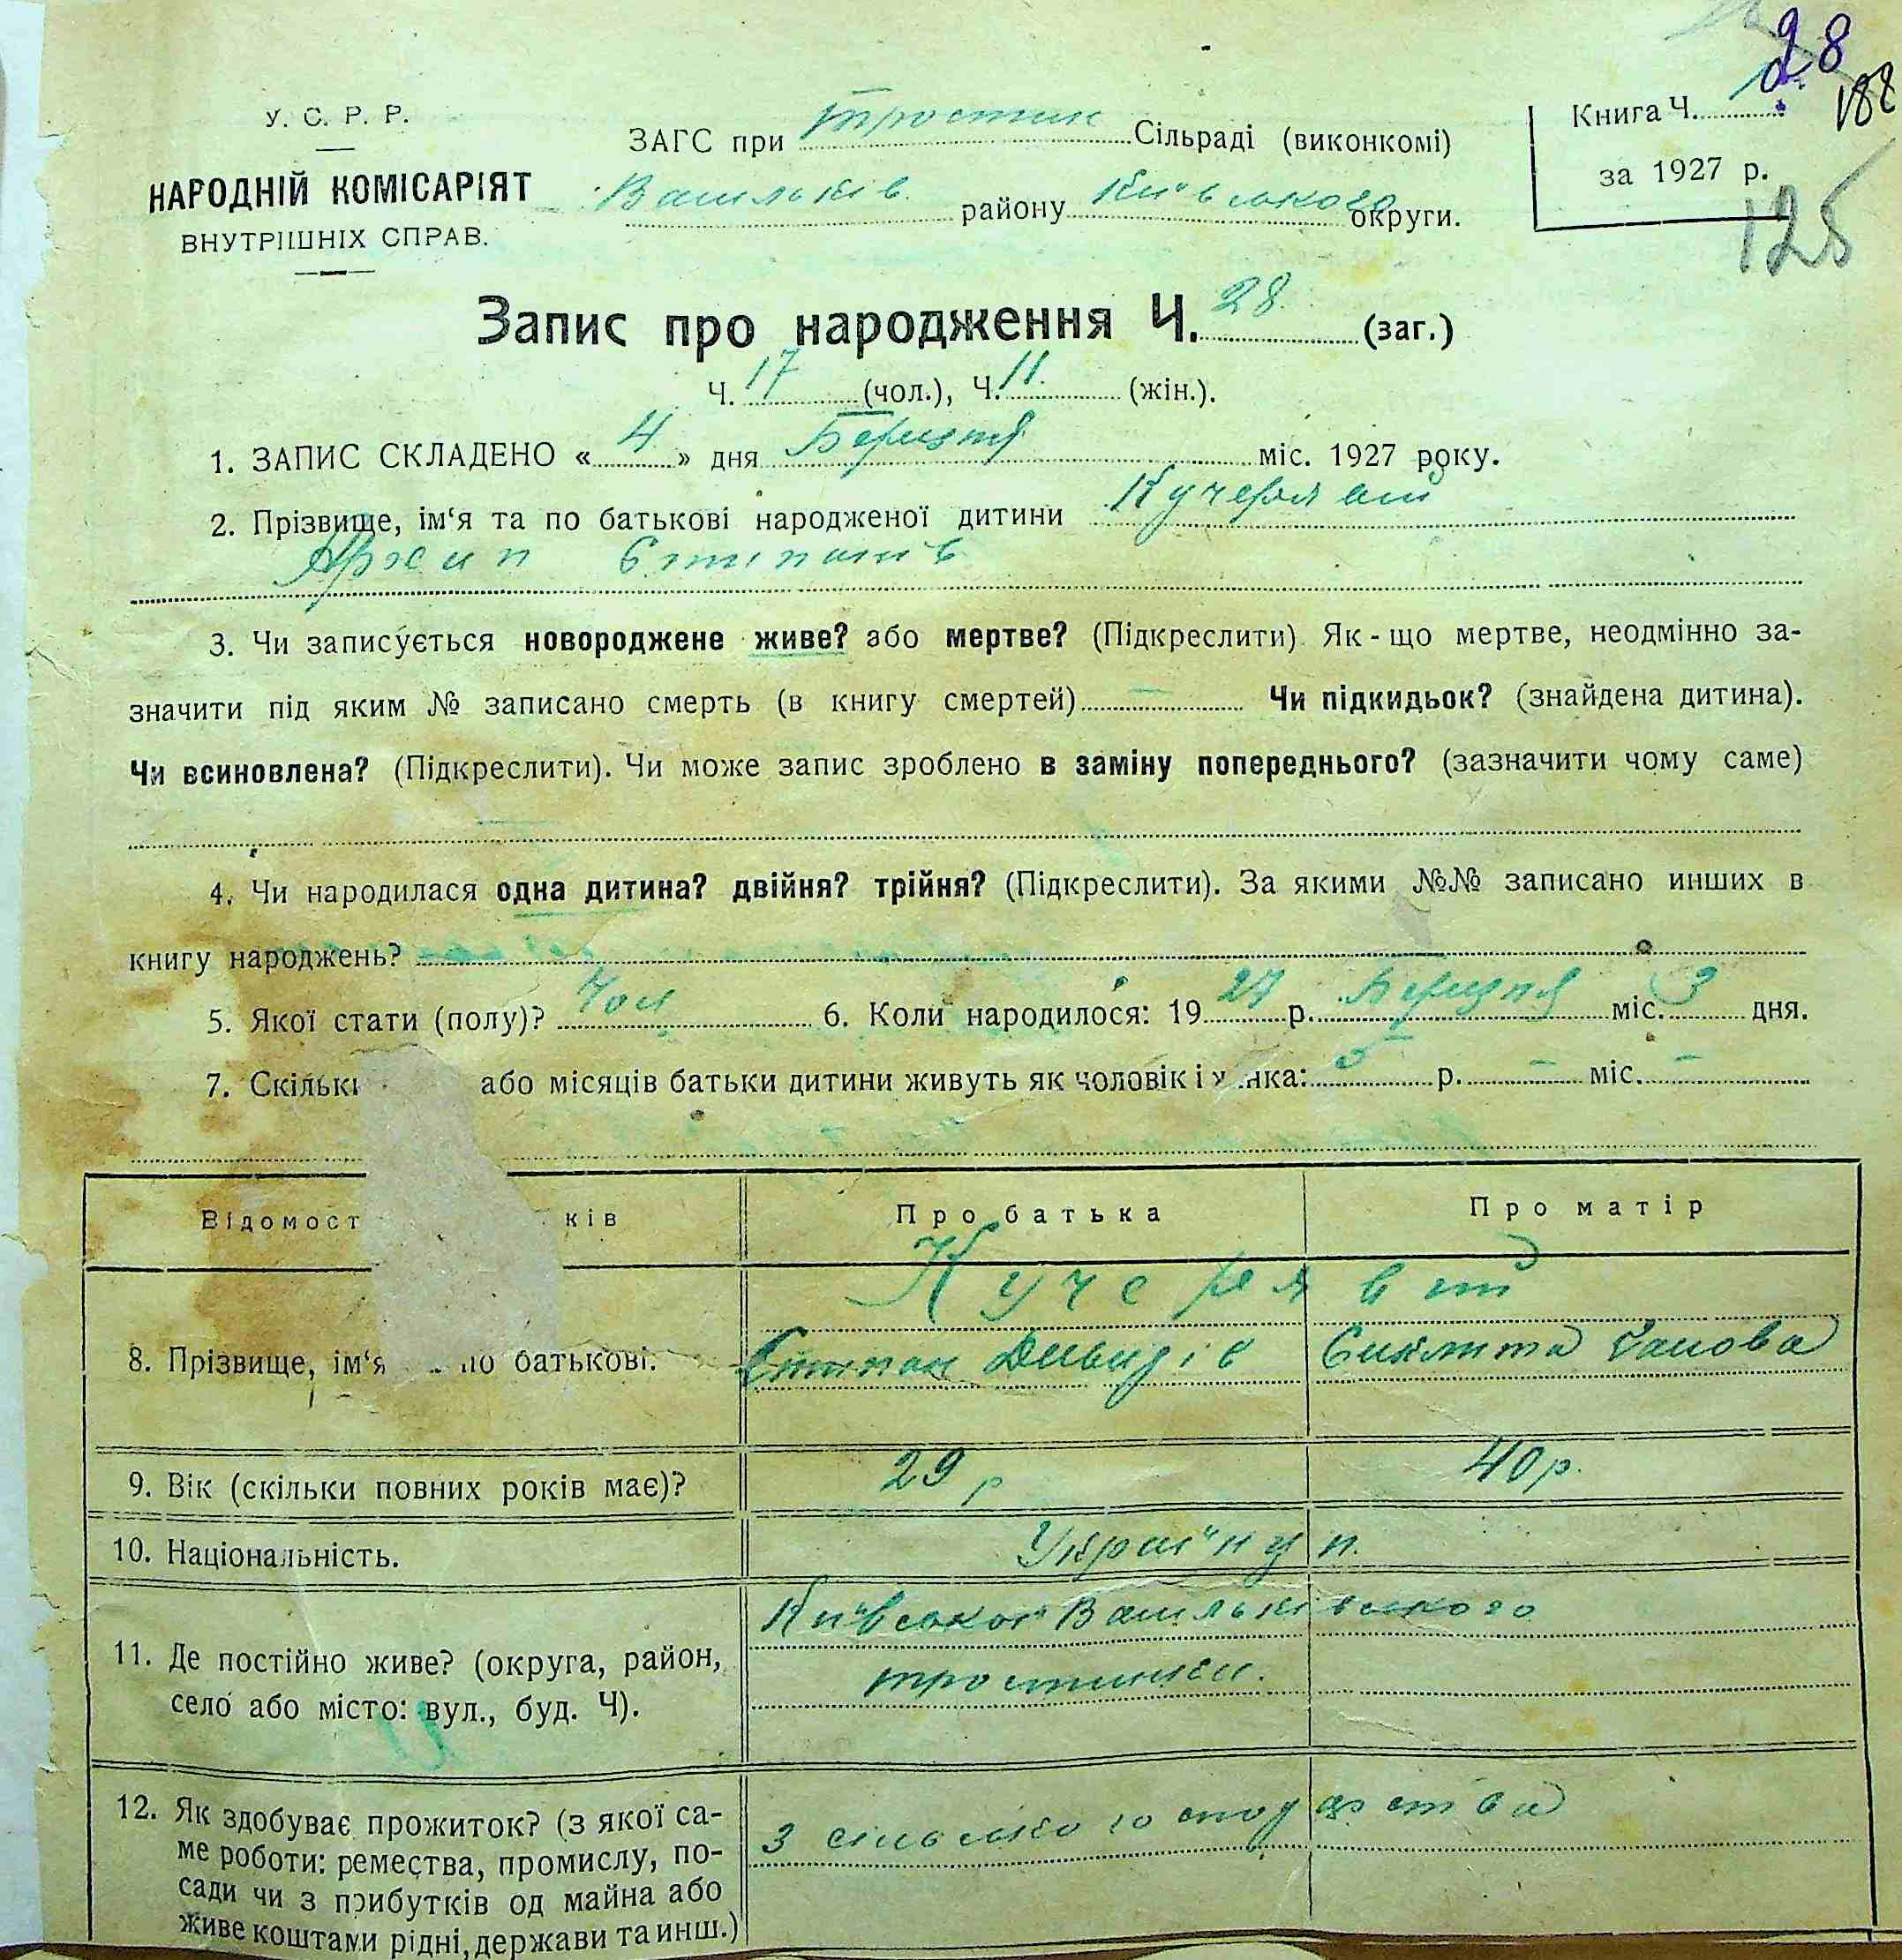 28
188
У. С. Р. Р.
НАРОДНІЙ КОМІСАРІЯТ
ВНУТРІШНІХ СПРАВ.
ЗАГС при Тростин Сільраді (виконкомі)
Васильків. району Київського округи.
Книга Ч.
за 1927 р.
125
Запис про народження Ч. 28 (заг.)
Ч. 17 (чол.), Ч. 11. (жін.).
1. ЗАПИС СКЛАДЕНО « 4 » дня Березня міс. 1927 року.
2. Прізвище, ім‘я та по батькові народженої дитини Кучерявий
Архип Степанів
3. Чи записується новороджене живе? або мертве? (Підкреслити) Як-що мертве, неодмінно за-
значити під яким № записано смерть (в книгу смертей) — Чи підкидьок? (знайдена дитина).
Чи всиновлена? (Підкреслити). Чи може запис зроблено в заміну попереднього? (зазначити чому саме)
4. Чи народилася одна дитина? двійня? трійня? (Підкреслити). За якими №№ записано инших в
книгу народжень?
5. Якої стати (полу)? Чол 6. Коли народилося: 1927 р. Березня міс. 3 дня.
7. Скільки або місяців батьки дитини живуть як чоловік і жінка: 5 р. — міс. —
Відомост ків
Про батька
Про матір
Кучерявий
8. Прізвище, ім‘я по батькові.
Степан Давидів
Єнклита
9. Вік (скільки повних років має)?
29 р
40 р.
10. Національність.
Україн ц н.
11. Де постійно живе? (округа, район,
село або місто: вул., буд. Ч).
Київської Васильківського
Тростинки.
12. Як здобуває прожиток? (з якої са-
ме роботи: ремества, промислу, по-
сади чи з прибутків од майна або
живе коштами рідні, держави та инш.)
З сільсько господарства